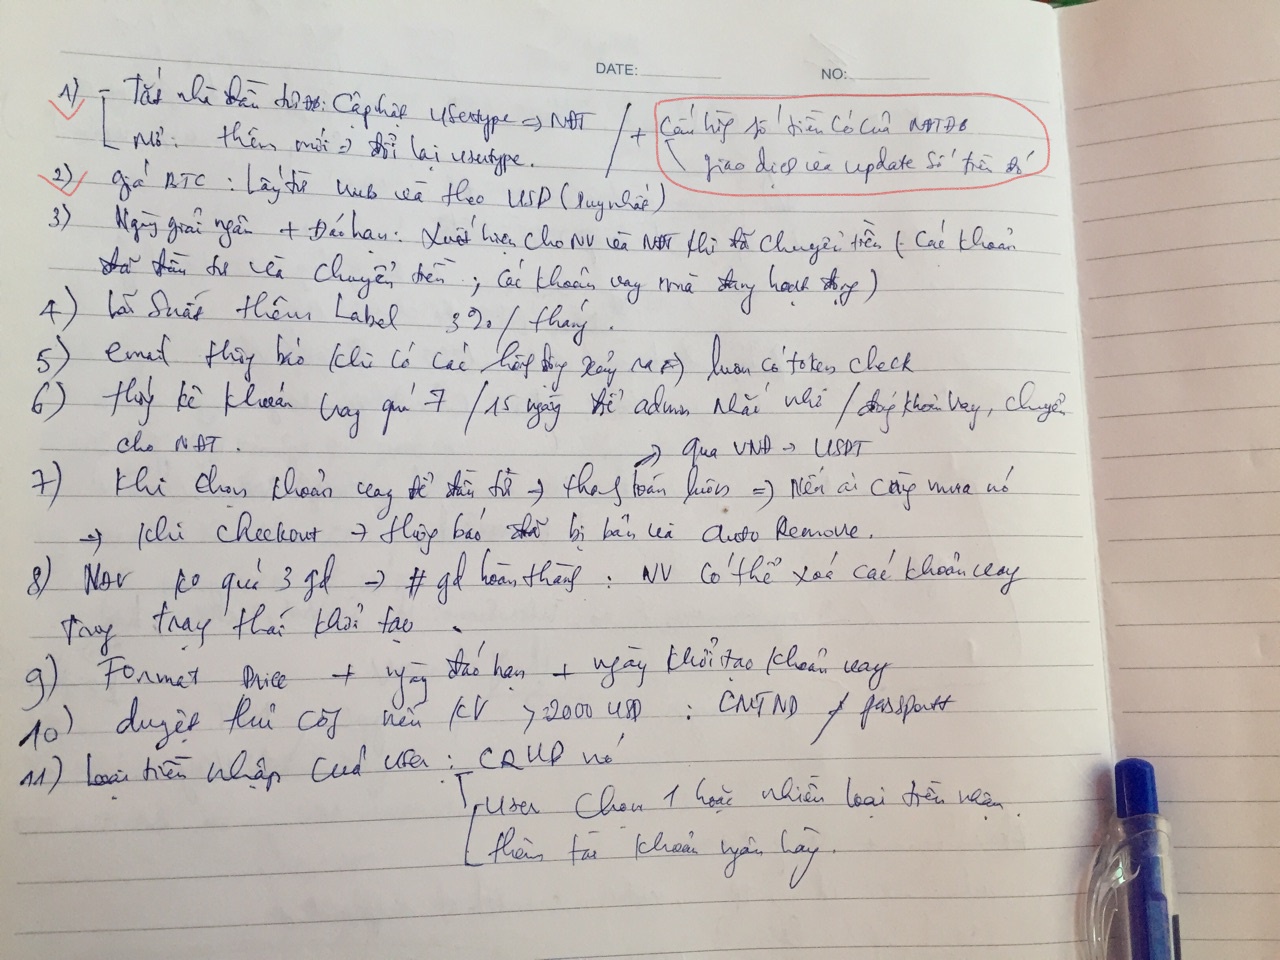 DATE: NO:
1) - Tắt nhà đầu tư ĐB: Cập nhật usertype => NĐT / + Cấu hình số tiền có của NĐTĐB
Mở: thêm mới => đổi lại usertype. giao dịch và update số tiền đó
2) giá BTC: Lấy từ web và theo USD (duy nhất)
3) Ngày giải ngân + Đáo hạn: Xuất hiện cho NV và NĐT khi đã chuyển tiền (- Các khoản
đã đầu tư và chuyển tiền; các khoản vay mà đang hoạt động)
4) Lãi suất thêm Label 3%/tháng.
5) email thông báo khi có các hđộng xảy ra => luôn có token check
6) thống kê khoản vay quá 7/15 ngày để admin nhắc nhở / đóng khoản vay, chuyển
cho NĐT. => qua VNĐ -> USDT
7) Khi chọn khoản vay để đầu tư -> thanh toán luôn => Nếu ai cũng mua nó
-> khi checkout -> thông báo đã bị bán và auto Remove.
8) NĐV ko quá 3 gd -> # gd hoàn thành: NV có thể xoá các khoản vay
trong trạng thái khởi tạo.
9) Format price + ngày đáo hạn + ngày khởi tạo khoản vay
10) duyệt thủ công nên KV > 2000 USD : CMTND / passport
11) Loại tiền nhập của user: CRUD nó
User chọn 1 hoặc nhiều loại tiền nhận.
thêm tài khoản ngân hàng.